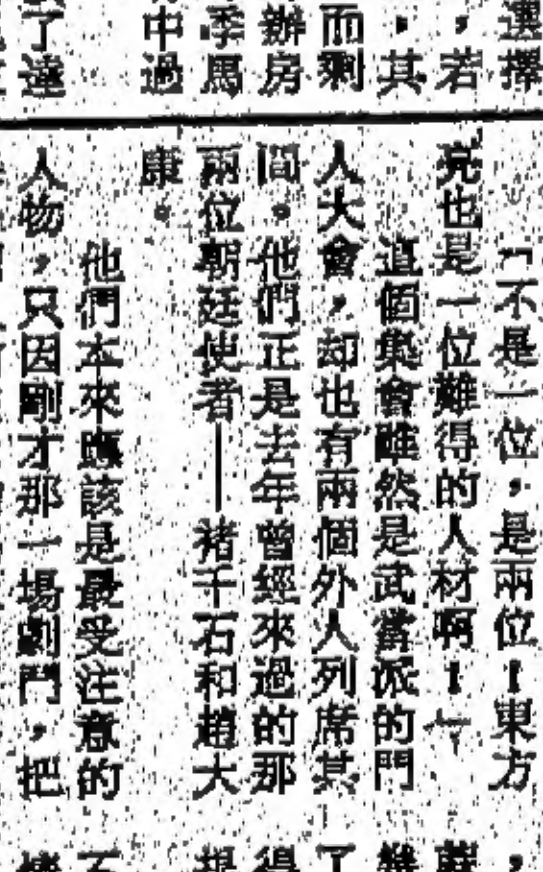 選擇
，若
，其
而剩
辦房
季馬
中過
了達
「不是一位，是兩位！東方
亮也是一位難得的人材啊！」
這個集會雖然是武當派的門
人大會，却也有兩個外人列席其
間。他們正是去年曾經來過的那
兩位朝廷使者——褚千石和趙大
康。
他們本來應該是最受注意的
人物，只因剛才那一場劇鬥，把